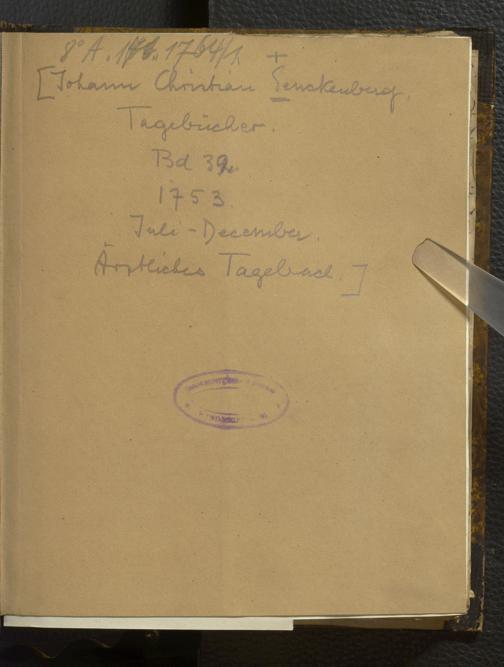 [Johann Christian Senckenberg.
Tagebücher.
Bd 39.
1753.
Juli-December.
Ärztliches Tagebuch.]